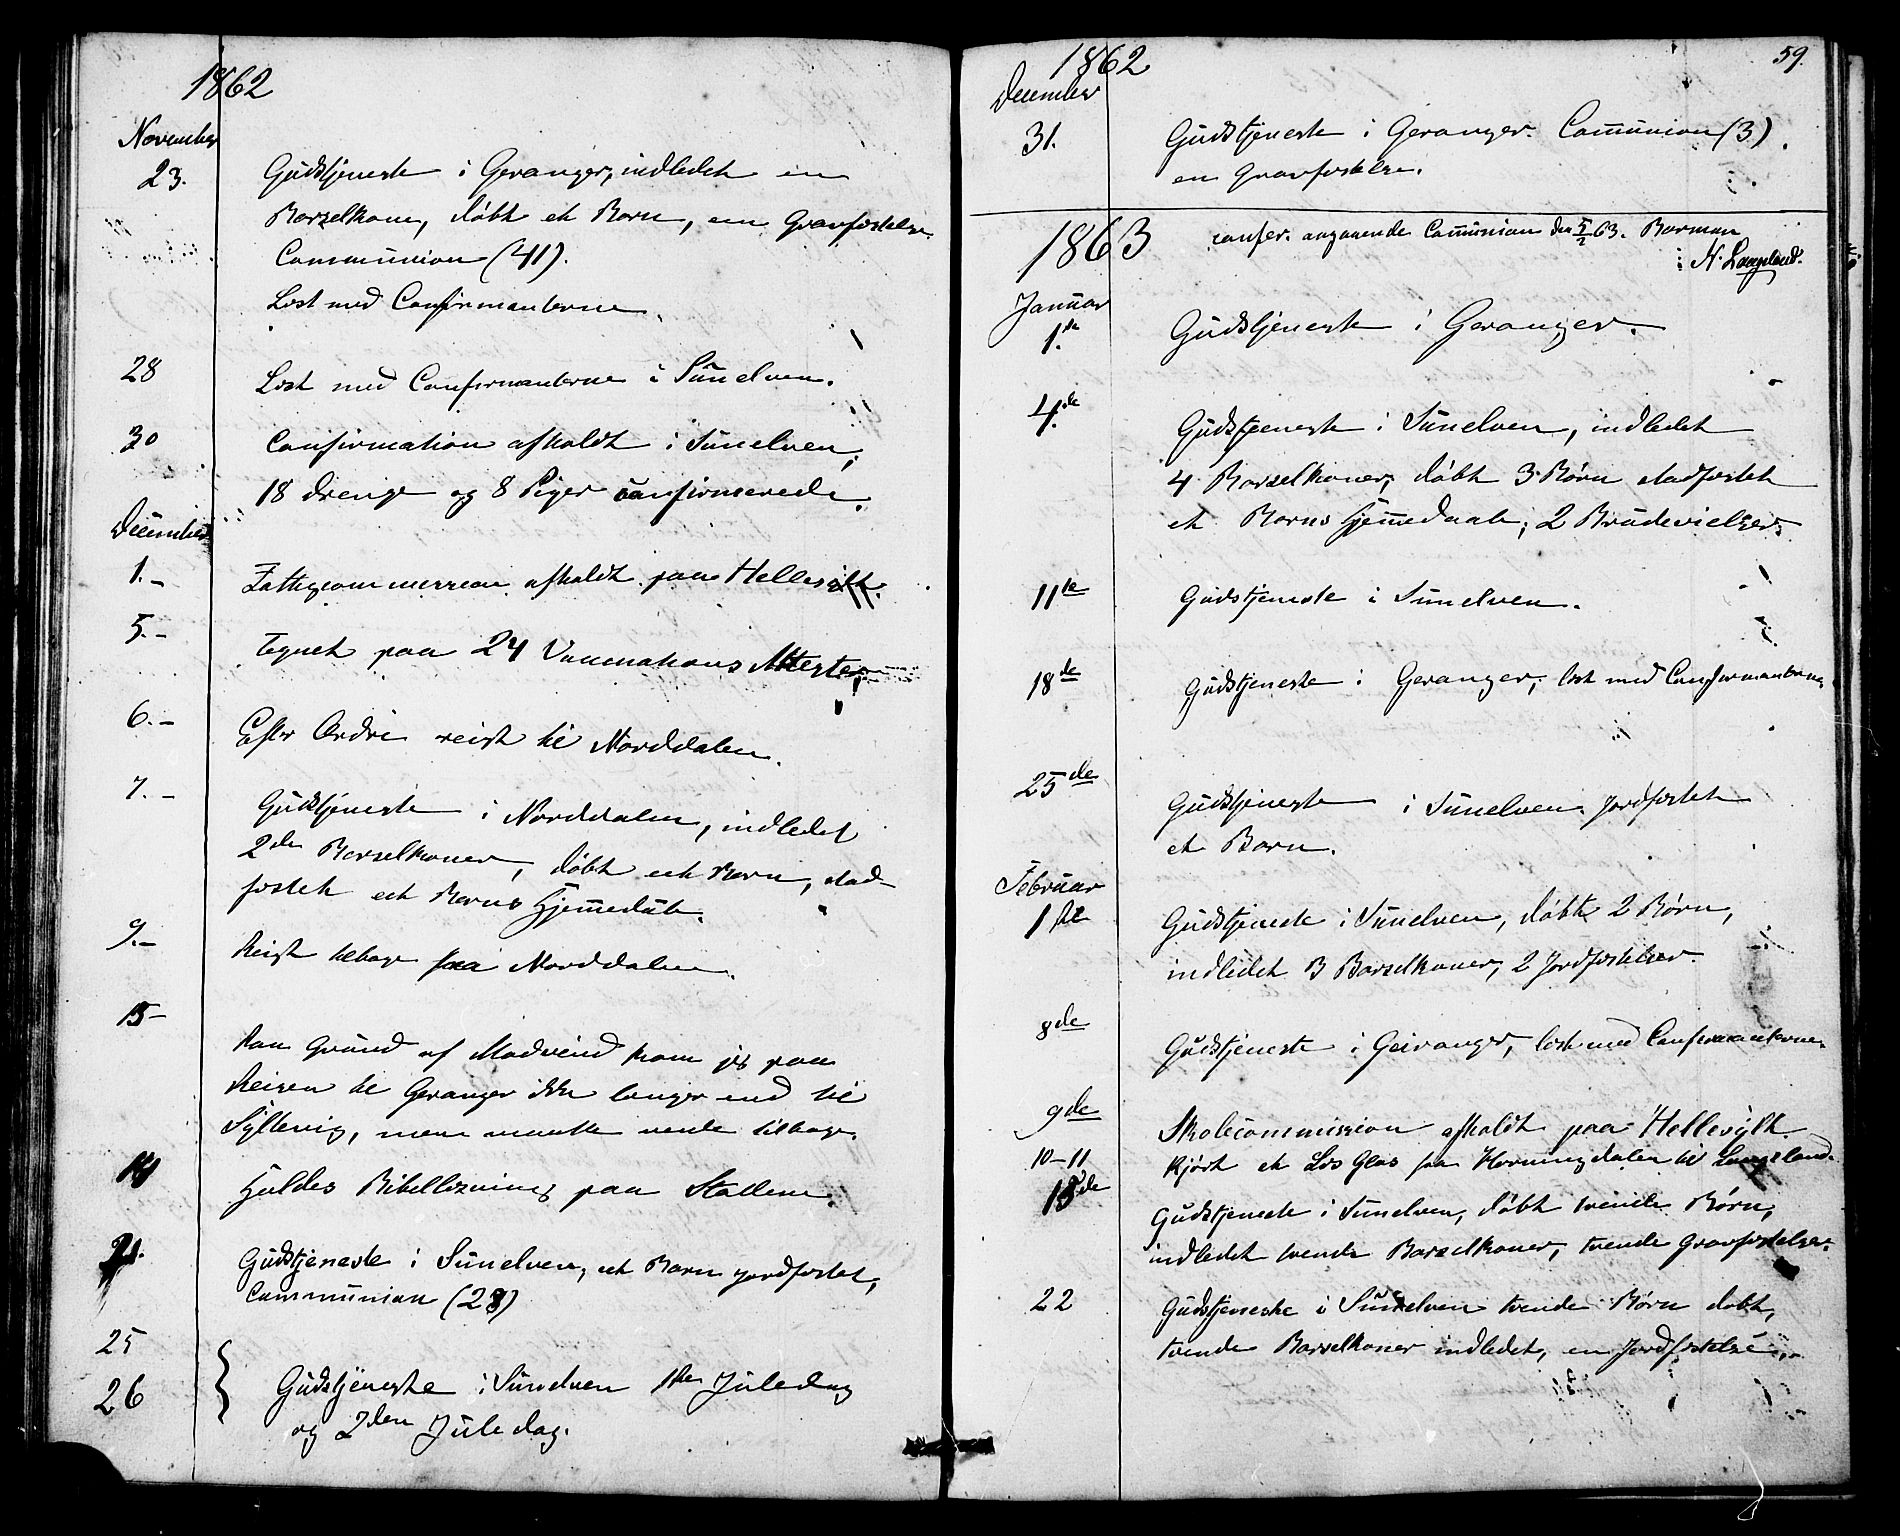 1862
November
23. Gudstjeneste i Geranger, indledet en
Barselkone, døbt et Barn, een Gravfæstelse
Communion (41).
Læst med Confirmanterne.
28 Læst med Confirmanterne i Sunelven.
30 Confirmation afholdt i Sunelven;
18 drenge og 8 Piger confirmerede.
December
1.- Fattigcommission afholdt paa Hellesylt.
5.- Tegnet paa 24 Vaccinations Attester.
6.- Efter Ordre reist til Norddalen.
7.- Gudstjeneste i Norddalen, indledet
2de Barselkoner, døbt eet Barn, stad-
fæstet eet Barns Hjemedåb.
9.- Reist tilbage fra Norddalen.
13- Paa Grund af Modvind kom jeg paa
Reisen til Geranger ikke længer end til
Syltevig, men maatte vende tilbage.
14 Holdes Bibellæsning paa Stadlene.
21. Gudstjeneste i Sunelven, eet Barn jordfæstet,
Communion (28)
25
26 Gudstjeneste i Sunelven 1ste Juledag
og 2den Juledag.
59.
1862
December
31. Gudstjeneste i Geranger. Communion (3).
en Gravfæstelse.
1863 confer. angaaende Communion den 5/2 63. Barman
i N. Langeland.
Januar
1.ste Gudstjeneste i Geranger.
4.de Gudstjeneste i Sunelven, indledet
4 Barselkoner, døbt 3 Børn stadfæstet
et Barns Hjemedaab, 2 Brudevielser.
11te Gudstjeneste i Sunelven.
18de Gudstjeneste i Geranger, læst med Confirmanterne
25de Gudstjeneste i Sunelven jordfæstet
et Barn.
Februar
1ste Gudstjeneste i Sunelven, døbt 2 Børn,
indledet 3 Barselkoner, 2 Jordfæstelser.
8de Gudstjeneste i Geiranger, læst med Confirmanterne.
9de Skolecommission afholdt paa Hellesylt.
10-11 Kjørt et Læs Glas fra Horningdalen til Langeland.
15de Gudstjeneste i Sunelven, døbt tvende Børn,
indledet tvende Barselkoner, tvende Gravfæstelser.
22 Gudstjeneste i Sunelven tvende Børn døbt,
tvende Barselkoner indledet, en Jordfæstelse.